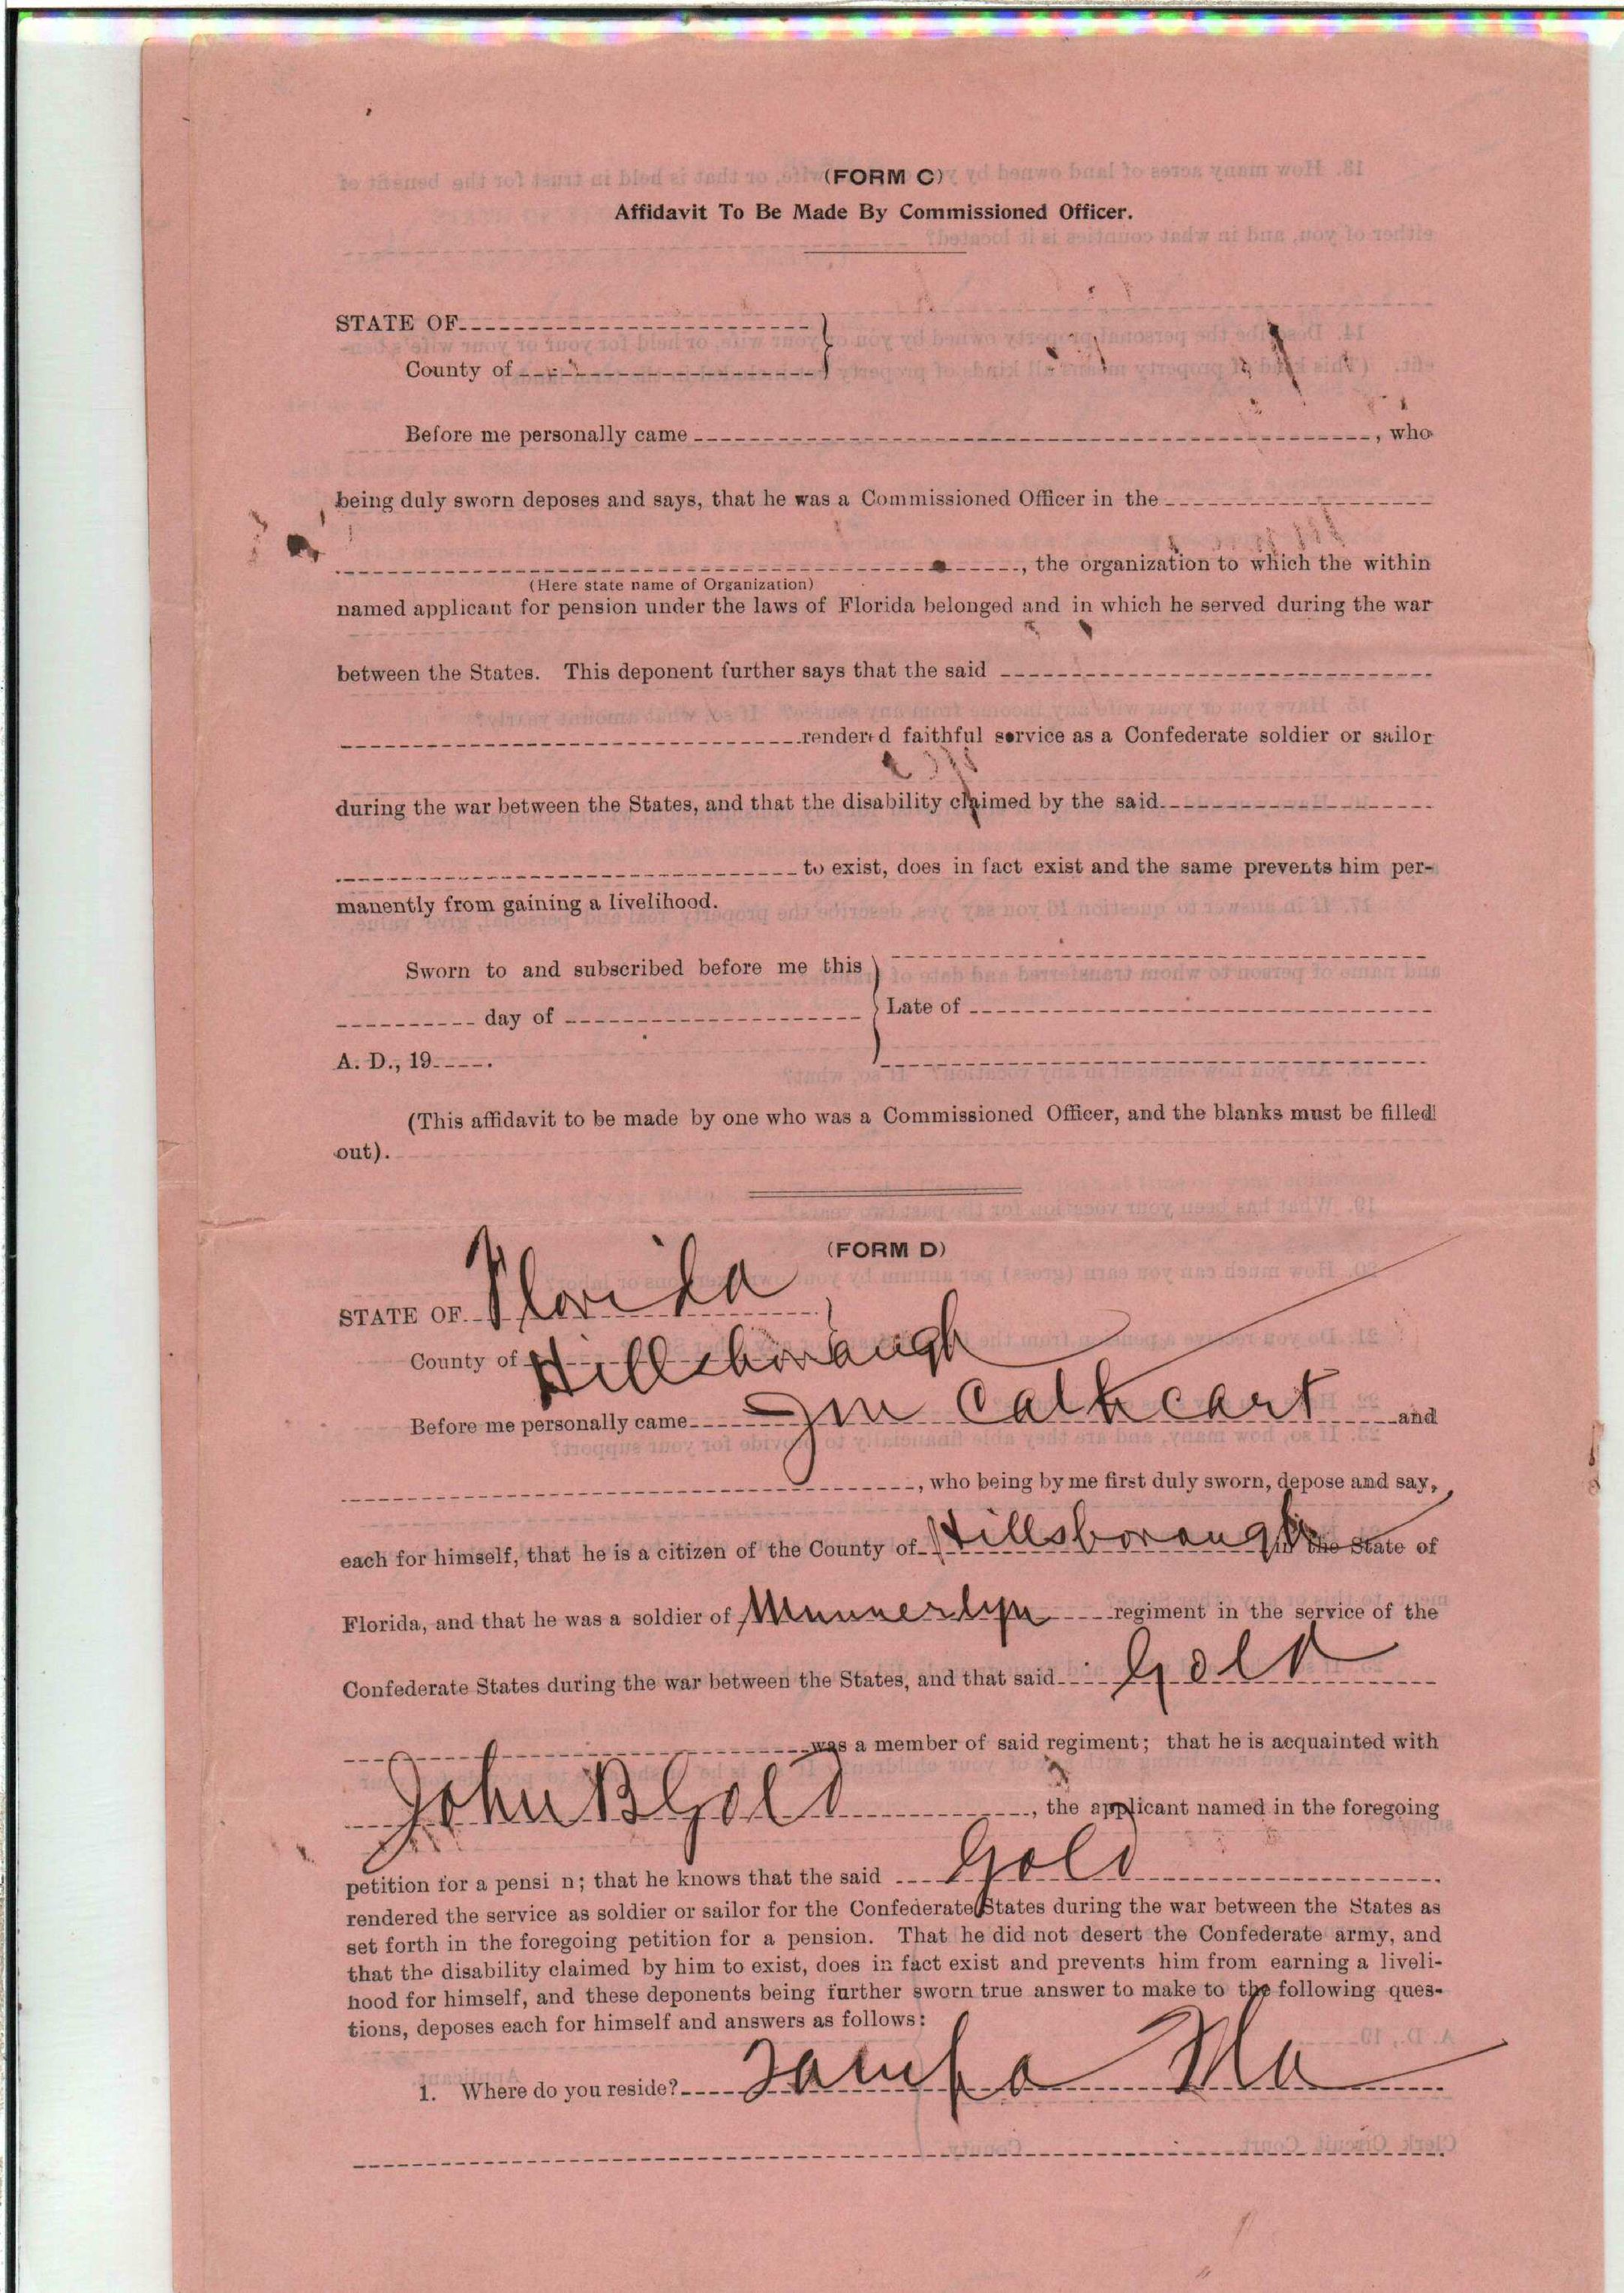 (FORM C)
Affidavit To Be Made By Commissioned Officer.
STATE OF
County of
Before me personally came , who
being duly sworn deposes and says, that he was a Commissioned Officer in the
, the organization to which the within
(Here state name of Organization)
named applicant for pension under the laws of Florida belonged and in which he served during the war
between the States. This deponent further says that the said
rendered faithful service as a Confederate soldier or sailor
during the war between the States, and that the disability claimed by the said
to exist, does in fact exist and the same prevents him per-
manently from gaining a livelihood.
Sworn to and subscribed before me this
day of Late of
A. D., 19 .
(This affidavit to be made by one who was a Commissioned Officer, and the blanks must be filled
out).
(FORM D)
STATE OF Florida
County of Hillsborough
Before me personally came Jm Cathcart and
, who being by me first duly sworn, depose and say,
each for himself, that he is a citizen of the County of Hillsborough in the State of
Florida, and that he was a soldier of Munnerlyn regiment in the service of the
Confederate States during the war between the States, and that said Gold
was a member of said regiment; that he is acquainted with
John B Gold , the applicant named in the foregoing
petition for a pensi n; that he knows that the said Gold
rendered the service as soldier or sailor for the Confederate States during the war between the States as
set forth in the foregoing petition for a pension. That he did not desert the Confederate army, and
that the disability claimed by him to exist, does in fact exist and prevents him from earning a liveli-
hood for himself, and these deponents being further sworn true answer to make to the following ques-
tions, deposes each for himself and answers as follows:
1. Where do you reside? Tampa Fla